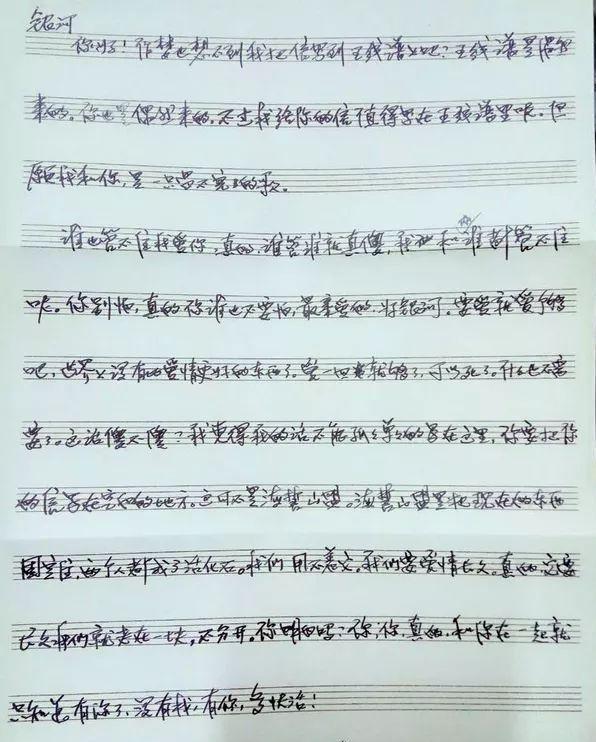 银河
你好！作梦也想不到我把信写到五线谱上吧？五线谱是偶然
来的。你也是偶然来的。不过我给你的信值得写在五线谱里呢。但
愿我和你，是一只唱不完的歌。
谁也管不住我爱你，真的，谁管谁就真傻，我和你谁都管不住
呢。你别怕，真的你谁也不要怕，最亲爱的好银河。要爱就爱个够
吧，世界上没有比爱情更好的东西了。爱一回就够了，可以死了。什么也不需
要了。这话傻不傻？我觉得我的话不能孤孤单单的写在这里，你要把你
的信写在空白的地方。这可不是海誓山盟。海誓山盟是把现在的东西
固定住，两个人都成了活化石。我们用不着它。我们要爱情长久。真的它要
长久我们就老在一块，不分开。你明白吗？你，你，真的，和你在一起就
只知道有你了，没有我，有你，多快活！